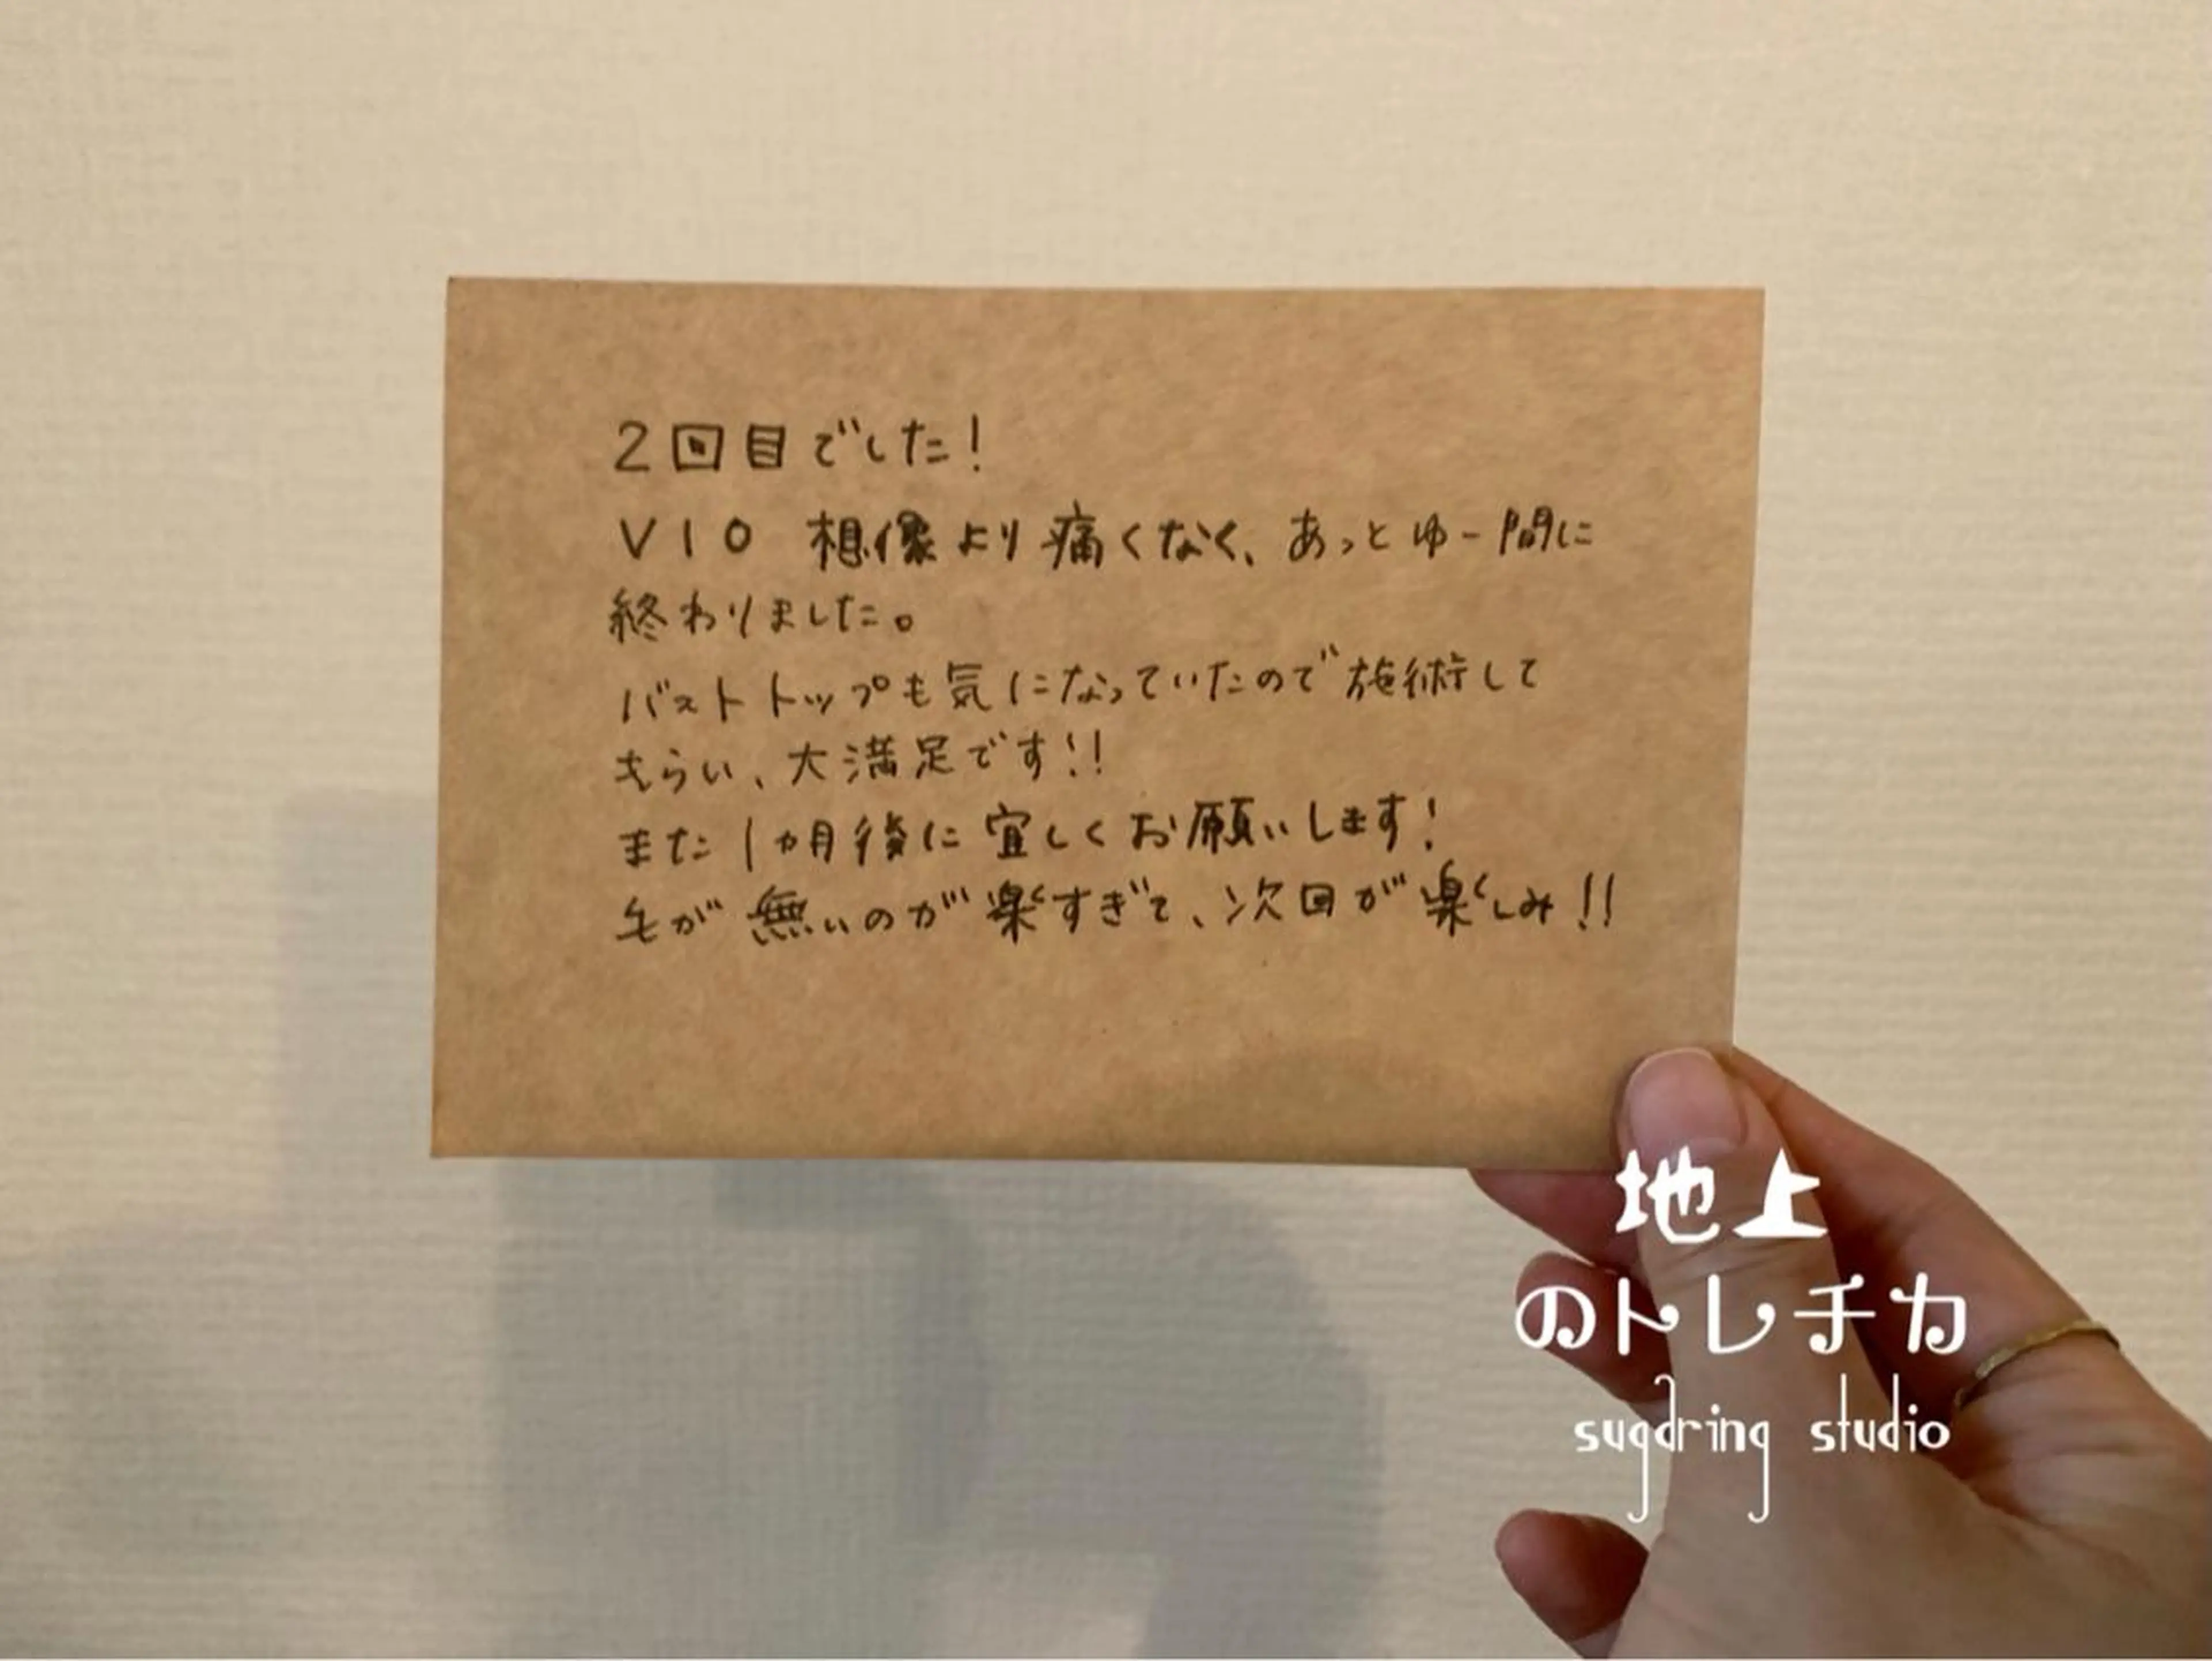 2回目でした!
VIO 想像より痛くなく、あっとゆー間に
終わりました。
バストトップも気になっていたので施術して
もらい、大満足です!!
また1ヵ月後に宜しくお願いします!
毛が無いのが楽すぎて、次回が楽しみ!!
地上
のトレチカ
sugaring studio